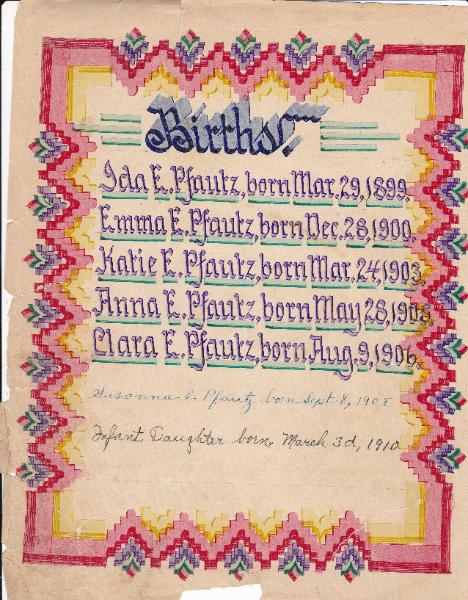 Births.
Ida E. Pfautz, born Mar. 29, 1899.
Emma E. Pfautz, born Dec. 28, 1900.
Katie E. Pfautz, born Mar. 24, 1903
Anna E. Pfautz, born May 28, 190
Clara E. Pfautz, born Aug. 9, 1906.
Susanna E. Pfautz born Sept. 8, 1908
Infant Daughter born, March 3d, 1910